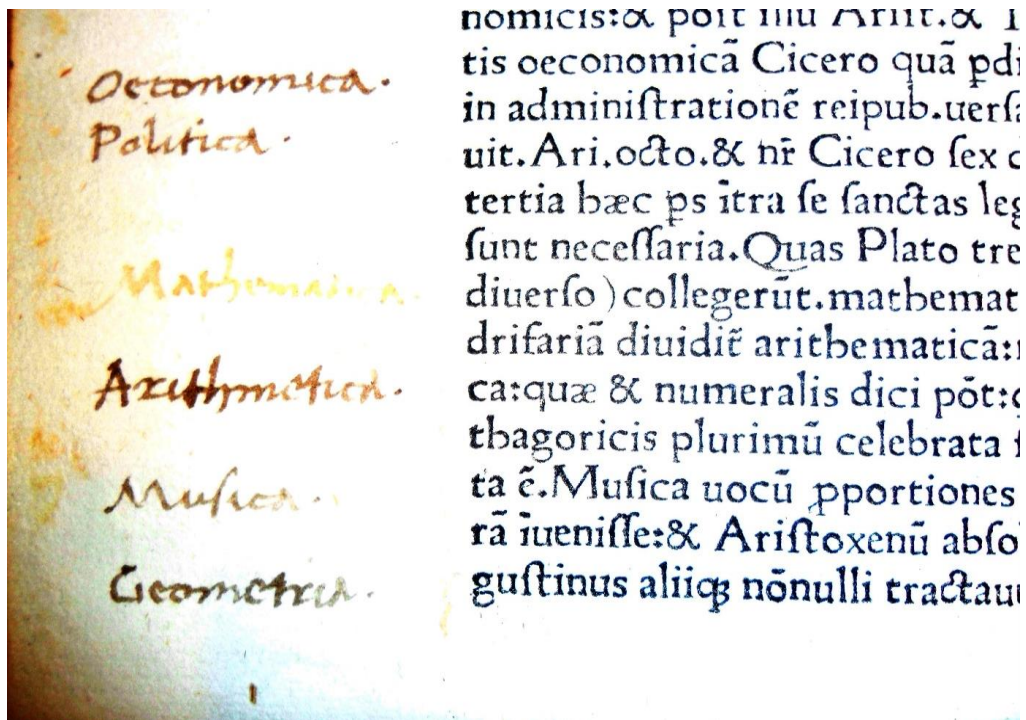 Oeconomica.
Politica.
Mathematica.
Arithmetica.
Musica.
Geometria.
nomicis:&
tis oeconomicã Cicero quã ꝓdi
in adminiſtrationẽ reipub.uerſa
uit.Ari.octo.& nr̃ Cicero ſex
tertia hæc ps ĩtra ſe ſanctas leg
ſunt neceſſaria.Quas Plato tre
diuerſo) collegerũt.mathemat
drifariã diuidit̃ arithematicã:
ca:quæ & numeralis dici põt:
thagoricis plurimũ celebrata
ta ẽ.Muſica uocũ ꝓportiones
rã ĩueniſſe:& Ariſtoxenũ abſo
guſtinus aliiqꝫ nõnulli tractau